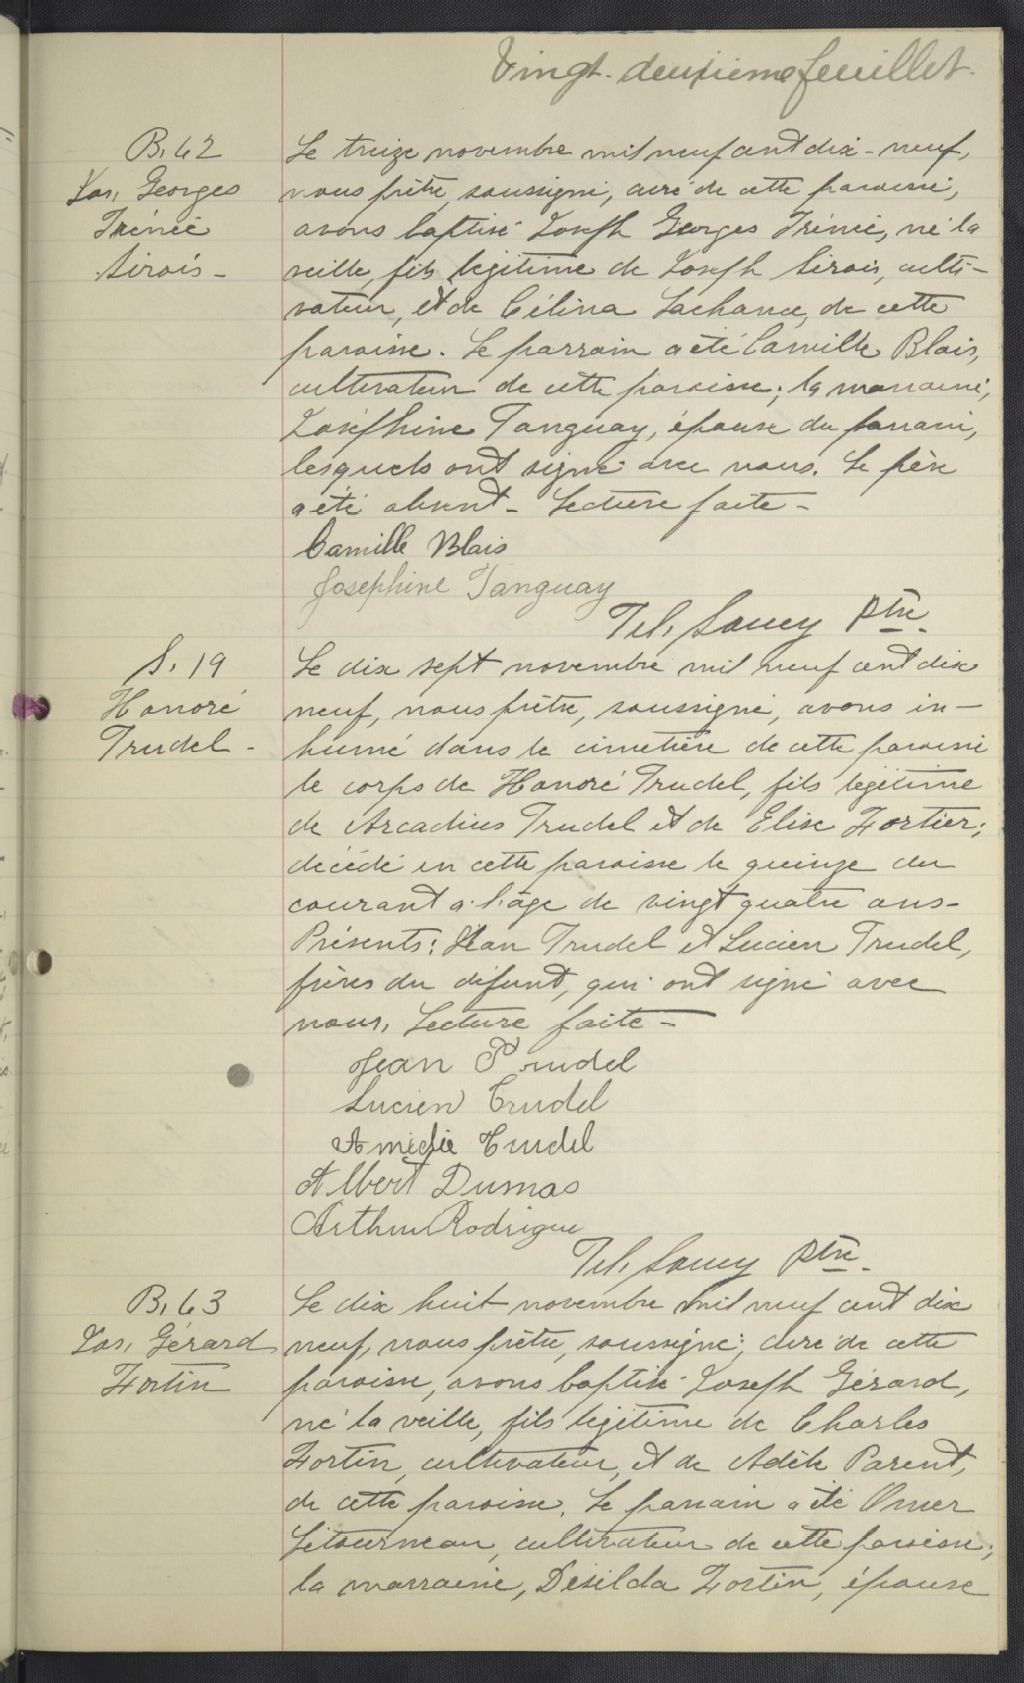 Vingt-deuxième feuillet.
B. 62
Jos. Georges
Irénée
Sirois -
Le treize novembre mil neuf cent dix-neuf,
nous prêtre, soussigné, curé de cette paroisse,
avons baptisé Joseph Georges Irénée, né la
veille, fils légitime de Joseph Sirois, culti-
vateur, et de Célina Lachance, de cette
paroisse. Le parrain a été Camille Blais,
cultivateur de cette paroisse; la marraine,
Joséphine Tanguay, épouse du parrain,
lesquels ont signé avec nous. Le père
a été absent - Lecture faite -
Camille Blais
Josephine Tanguay
Tel. Soucy Ptre.
S. 19
Honoré
Trudel -
Le dix sept novembre mil neuf cent dix
neuf, nous prêtre, soussigné, avons in-
humé dans le cimetière de cette paroisse
le corps de Honoré Trudel, fils légitime
de Arcadius Trudel et de Elise Fortier;
décédé en cette paroisse le quinze du
courant a l'âge de vingt quatre ans -
Présents: Jean Trudel et Lucien Trudel,
frères du défunt, qui ont signé avec
nous. Lecture faite -
Jean Trudel
Lucien Trudel
Amédée Trudel
Albert Dumas
Arthur Rodrigue
Tel. Soucy Ptre.
B. 63
Jos. Gérard
Fortin
Le dix huit novembre mil neuf cent dix
neuf, nous prêtre, soussigné, curé de cette
paroisse, avons baptisé Joseph Gérard,
né la veille, fils légitime de Charles
Fortin, cultivateur, et de Adèle Parent,
de cette paroisse. Le parrain a été Omer
Létourneau, cultivateur de cette paroisse;
la marraine, Désilda Fortin, épouse